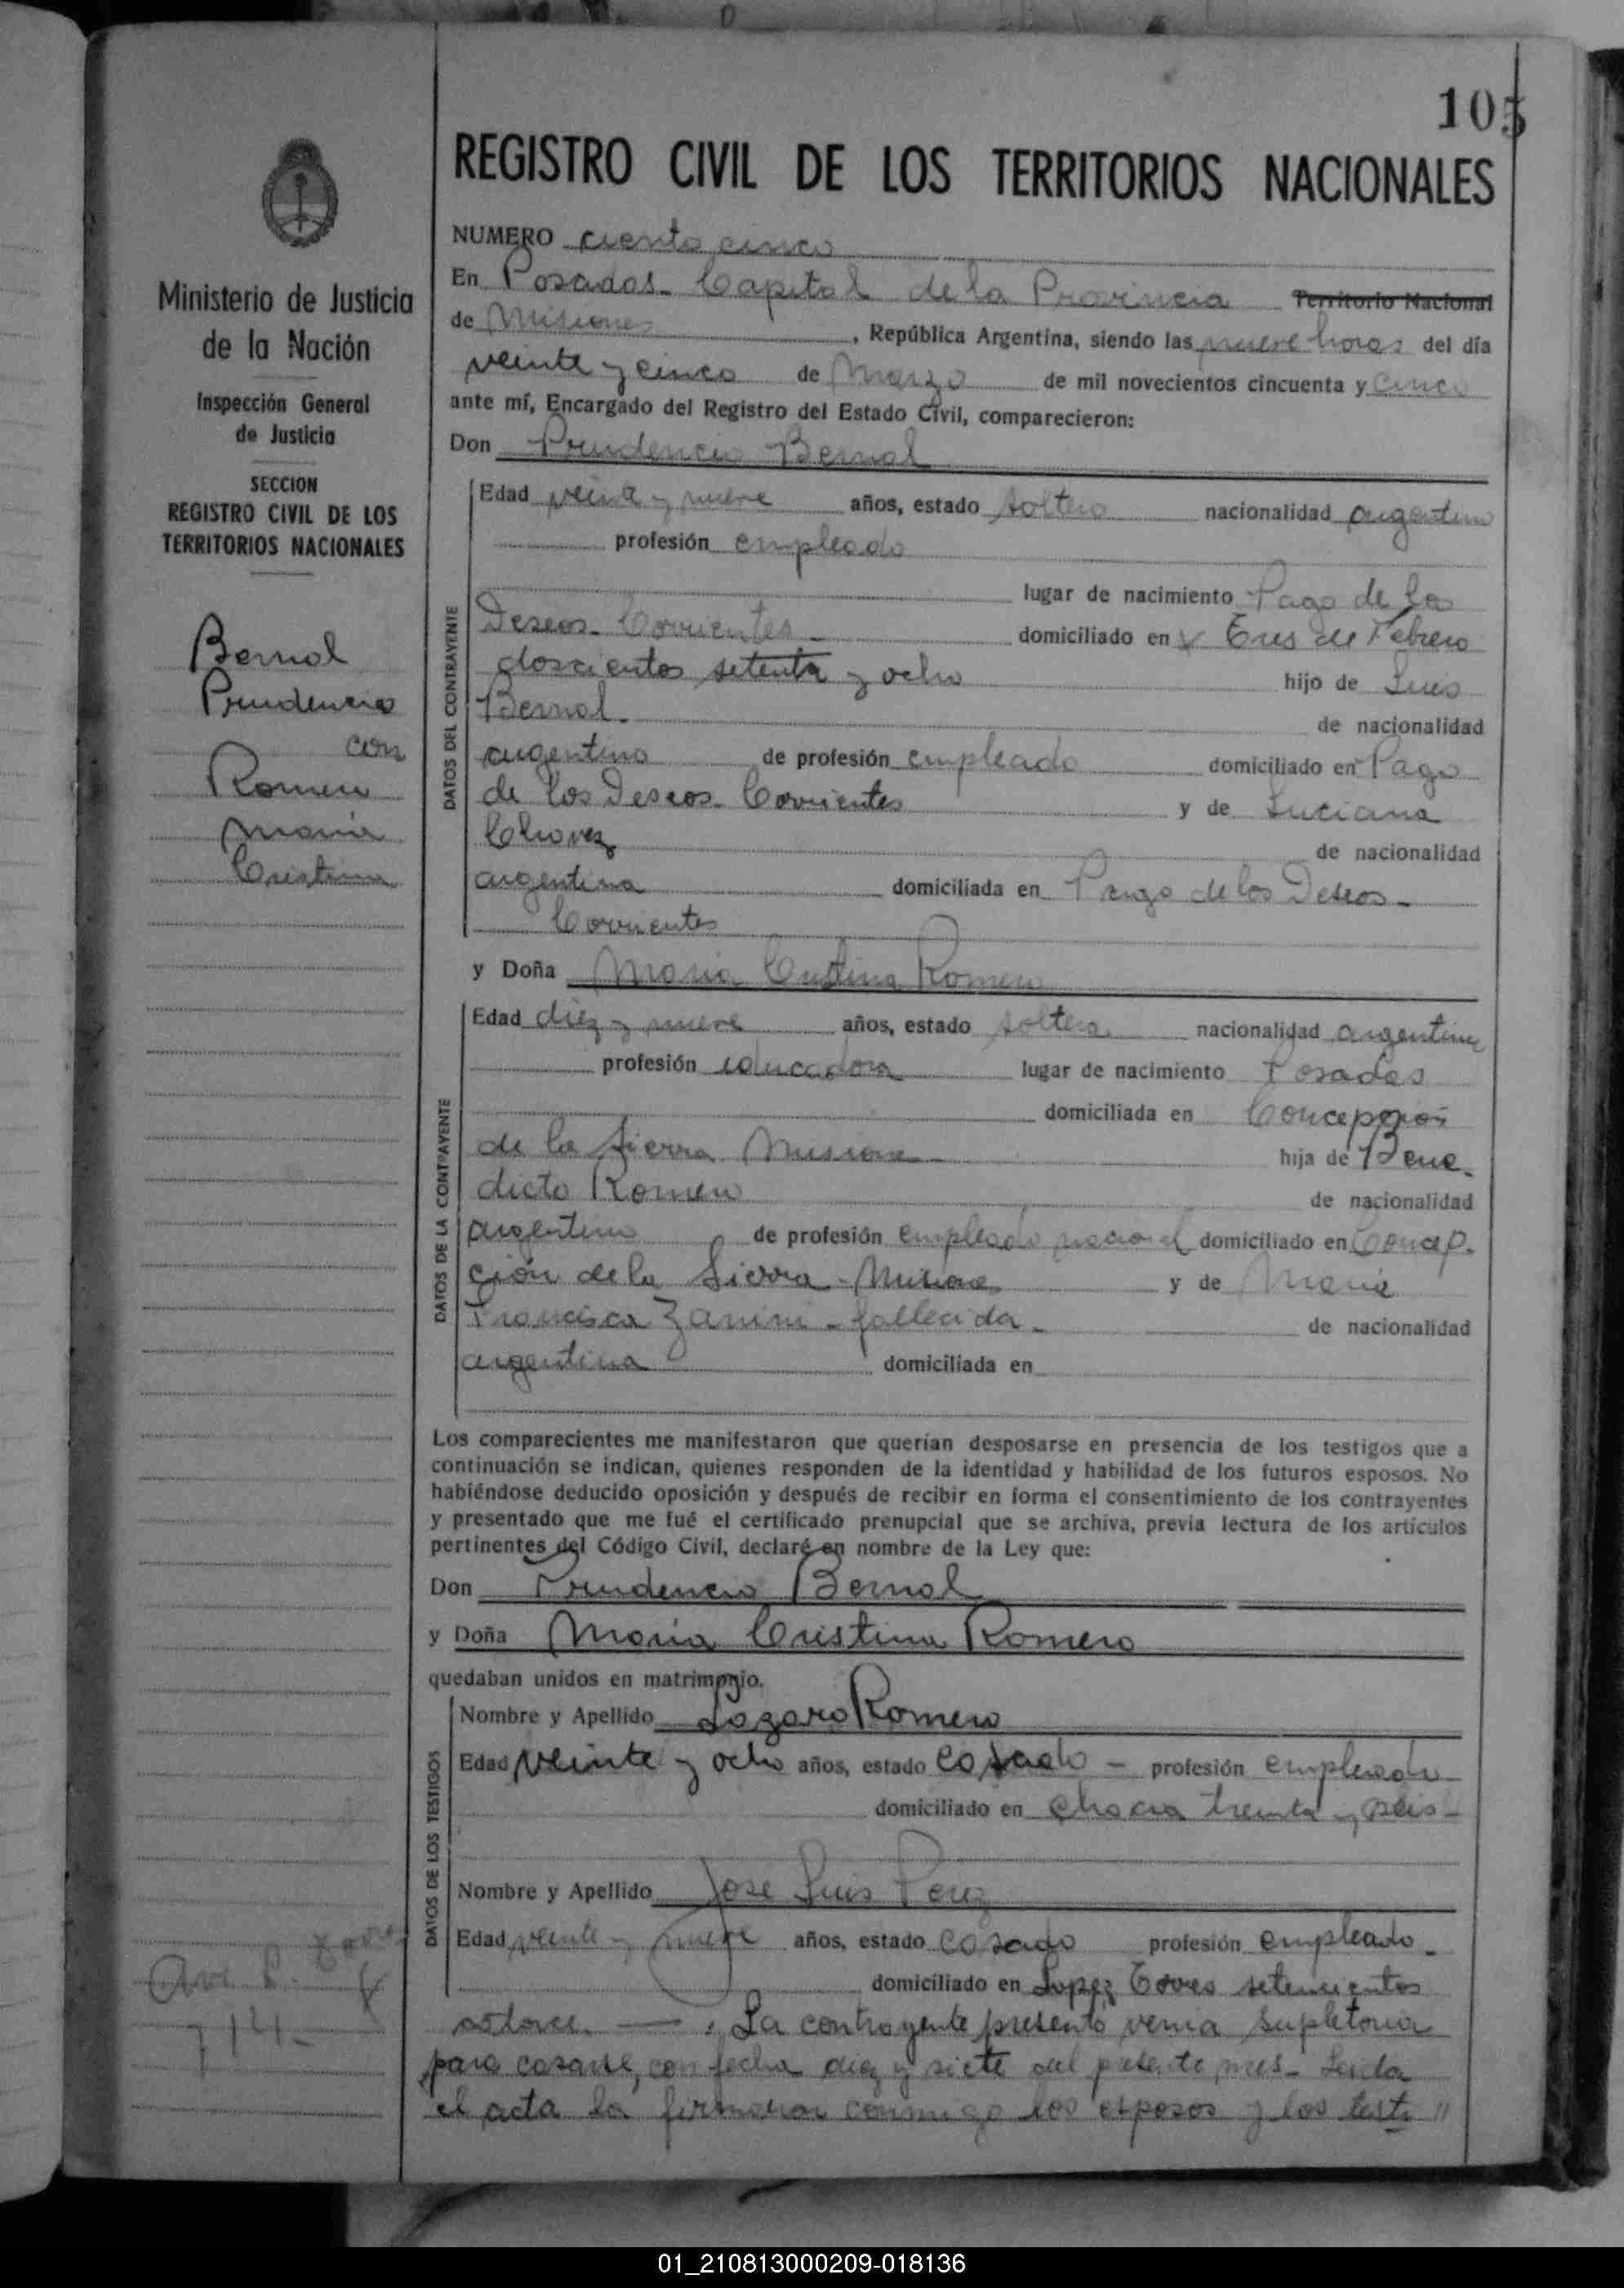 105
REGISTRO CIVIL DE LOS TERRITORIOS NACIONALES
Ministerio de Justicia
de la Nación
Inspección General
de Justicia
SECCION
REGISTRO CIVIL DE LOS
TERRITORIOS NACIONALES
Bernal
Prudencio
con
Romero
Maria
Cristina
714-
NUMERO ciento cinco
En Posadas - Capital de la Provincia Territorio Nacional
de Misiones, República Argentina, siendo las nueve horas del día
veinte y cinco de Marzo de mil novecientos cincuenta y cinco
ante mí, Encargado del Registro del Estado Civil, comparecieron:
Don Prudencio Bernal
DATOS DEL CONTRAYENTE
Edad veinte y nueve años, estado soltero nacionalidad argentino
profesión empleado
lugar de nacimiento Pago de los
Deseos - Corrientes - domiciliado en Tres de Febrero
doscientos setenta y ocho hijo de Luis
Bernal - de nacionalidad
argentino de profesión empleado domiciliado en Pago
de los Deseos - Corrientes y de Luciana
Chavez de nacionalidad
argentina domiciliada en Pago de los Deseos -
Corrientes
y Doña Maria Cristina Romero
DATOS DE LA CONTRAYENTE
Edad diez y nueve años, estado soltera nacionalidad argentina
profesión educadora lugar de nacimiento Posadas
domiciliada en Concepción
de la Sierra Misiones - hija de Bene-
dicto Romero de nacionalidad
argentino de profesión empleado nacional domiciliado en Concep-
ción de la Sierra - Misiones y de Maria
Francisca Zanini - fallecida - de nacionalidad
argentina domiciliada en
Los comparecientes me manifestaron que querían desposarse en presencia de los testigos que a
continuación se indican, quienes responden de la identidad y habilidad de los futuros esposos. No
habiéndose deducido oposición y después de recibir en forma el consentimiento de los contrayentes
y presentado que me fué el certificado prenupcial que se archiva, previa lectura de los artículos
pertinentes del Código Civil, declaré en nombre de la Ley que:
Don Prudencio Bernal
y Doña Maria Cristina Romero
quedaban unidos en matrimonio.
DATOS DE LOS TESTIGOS
Nombre y Apellido Lazaro Romero
Edad veinte y ocho años, estado casado - profesión empleado
domiciliado en Chacra treinta y seis -
Nombre y Apellido Jose Luis Perez
Edad veinte y nueve años, estado casado profesión empleado -
domiciliado en Lopez Torres setecientos
catorce. — . La contrayente presentó venia supletoria
para casarse, con fecha diez y siete del presente mes - Leida
el acta la firmaron conmigo los esposos y los testi "
01_210813000209-018136